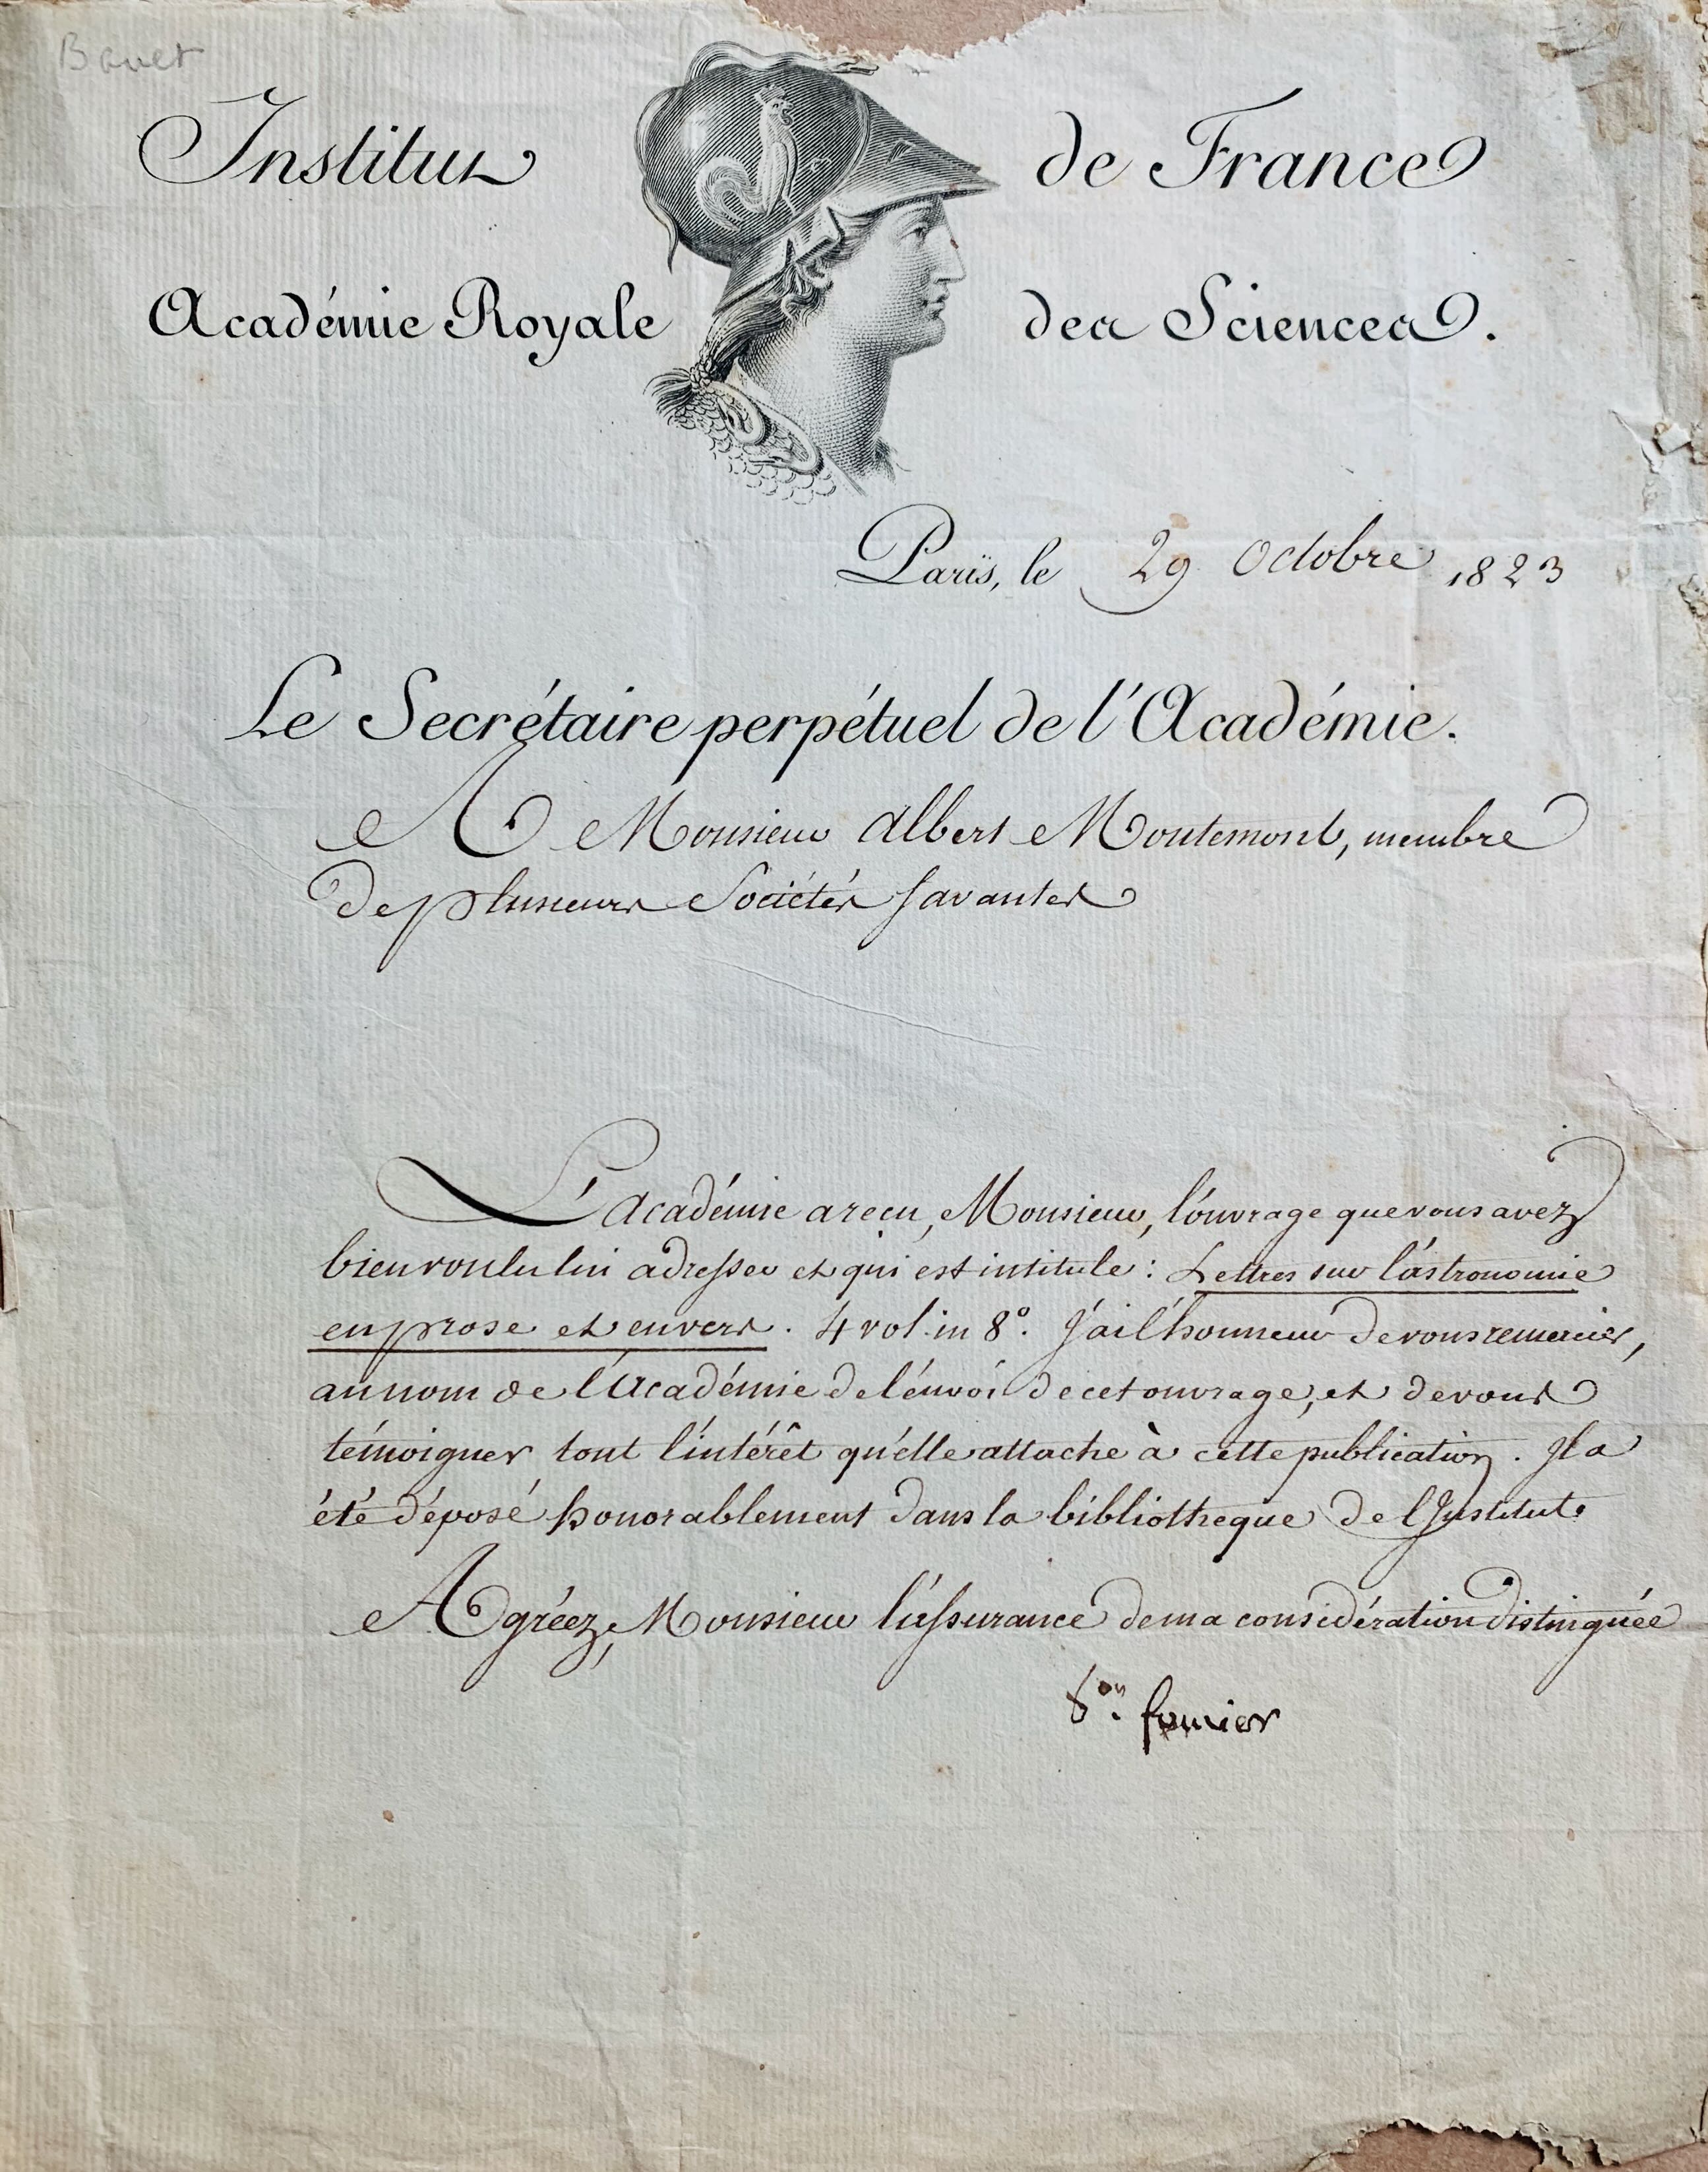 Institut de France
Académie Royale des Sciences.
Paris, le 29 Octobre 1823
Le Secrétaire perpétuel de l'Académie.
A Monsieur Albert Montemont, membre
de plusieurs Sociétés Savantes
L'Académie a reçu, Monsieur, l'ouvrage que vous avez
bien voulu lui adresser et qui est intitulé : Lettres sur l'astronomie
en prose et en vers. 4 vol. in 8º. J'ai l'honneur de vous remercier,
au nom de l'Académie de l'envoi de cet ouvrage, et de vous
témoigner tout l'intérêt qu'elle attache à cette publication. Il a
été déposé honorablement dans la bibliothèque de l'Institut.
Agréez, Monsieur l'assurance de ma considération distinguée
Bon. fourier